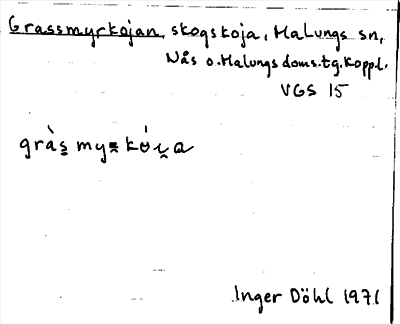 Grassmyrkojan, skogskoja, Malungs sn,
Nås o. Malungs doms.tg. Koppl.
VGS 15
Inger Döhl 1971